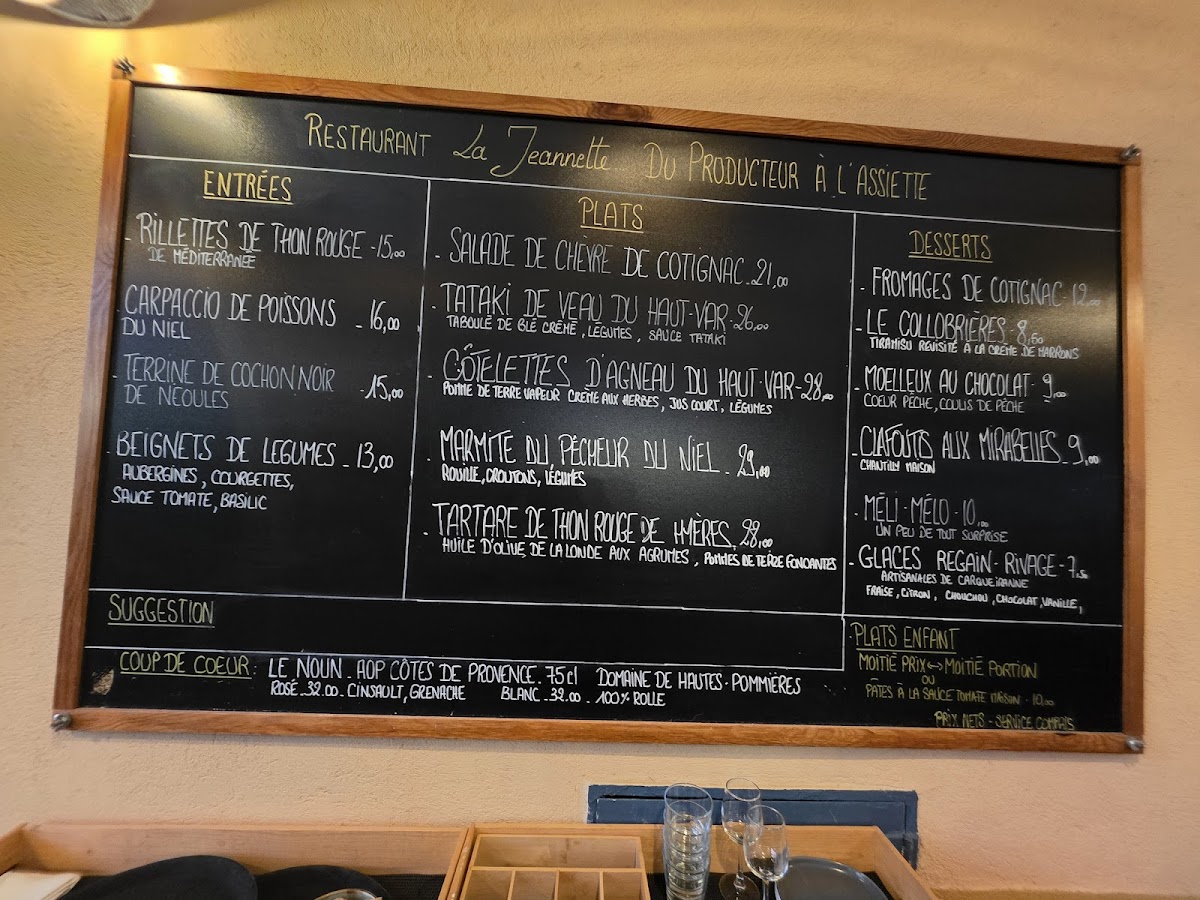 RESTAURANT La Jeannette DU PRODUCTEUR À L'ASSIETTE
ENTRÉES
- RILLETTES DE THON ROUGE - 15,00
DE MÉDITERRANÉE
- CARPACCIO DE POISSONS
DU NIEL - 16,00
- TERRINE DE COCHON NOIR
DE NÉOULES - 15,00
- BEIGNETS DE LEGUMES - 13,00
AUBERGINES, COURGETTES,
SAUCE TOMATE, BASILIC
PLATS
- SALADE DE CHÈVRE DE COTIGNAC - 21,00
- TATAKI DE VEAU DU HAUT-VAR - 26,00
TABOULÉ DE BLÉ CRÊMÉ, LÉGUMES, SAUCE TATAKI
- CÔTELETTES D'AGNEAU DU HAUT-VAR - 28,00
POMME DE TERRE VAPEUR CREME AUX HERBES, JUS COURT, LÉGUMES
- MARMITE DU PÊCHEUR DU NIEL - 29,00
ROUILLE, CROUTONS, LÉGUMES
- TARTARE DE THON ROUGE DE HYÈRES. 28,00
HUILE D'OLIVE DE LA LONDE AUX AGRUMES, POMMES DE TERRE FONDANTES
DESSERTS
- FROMAGES DE COTIGNAC - 12,00
- LE COLLOBRIÈRES - 8,50
TIRAMISU REVISITÉ À LA CRÈME DE MARRONS
- MOELLEUX AU CHOCOLAT - 9,00
COEUR PÊCHE, COULIS DE PÊCHE
- CLAFOUTIS AUX MIRABELLES - 9,00
CHANTILLY MAISON
- MÉLI-MÉLO - 10,00
UN PEU DE TOUT SURPRISE
- GLACES REGAIN - RIVAGE - 7,50
ARTISANALES DE CARQUEIRANNE
FRAISE, CITRON, CHOUCHOU, CHOCOLAT, VANILLE,
SUGGESTION
COUP DE COEUR: LE NOUN - AOP CÔTES DE PROVENCE - 75cl DOMAINE DE HAUTES-POMMIÈRES
ROSÉ - 32.00 - CINSAULT, GRENACHE BLANC - 32.00 - 100% ROLLE
PLATS ENFANT
MOITIÉ PRIX ↔ MOITIÉ PORTION
OU
PÂTES À LA SAUCE TOMATE MAISON - 10,00
PRIX NETS - SERVICE COMPRIS